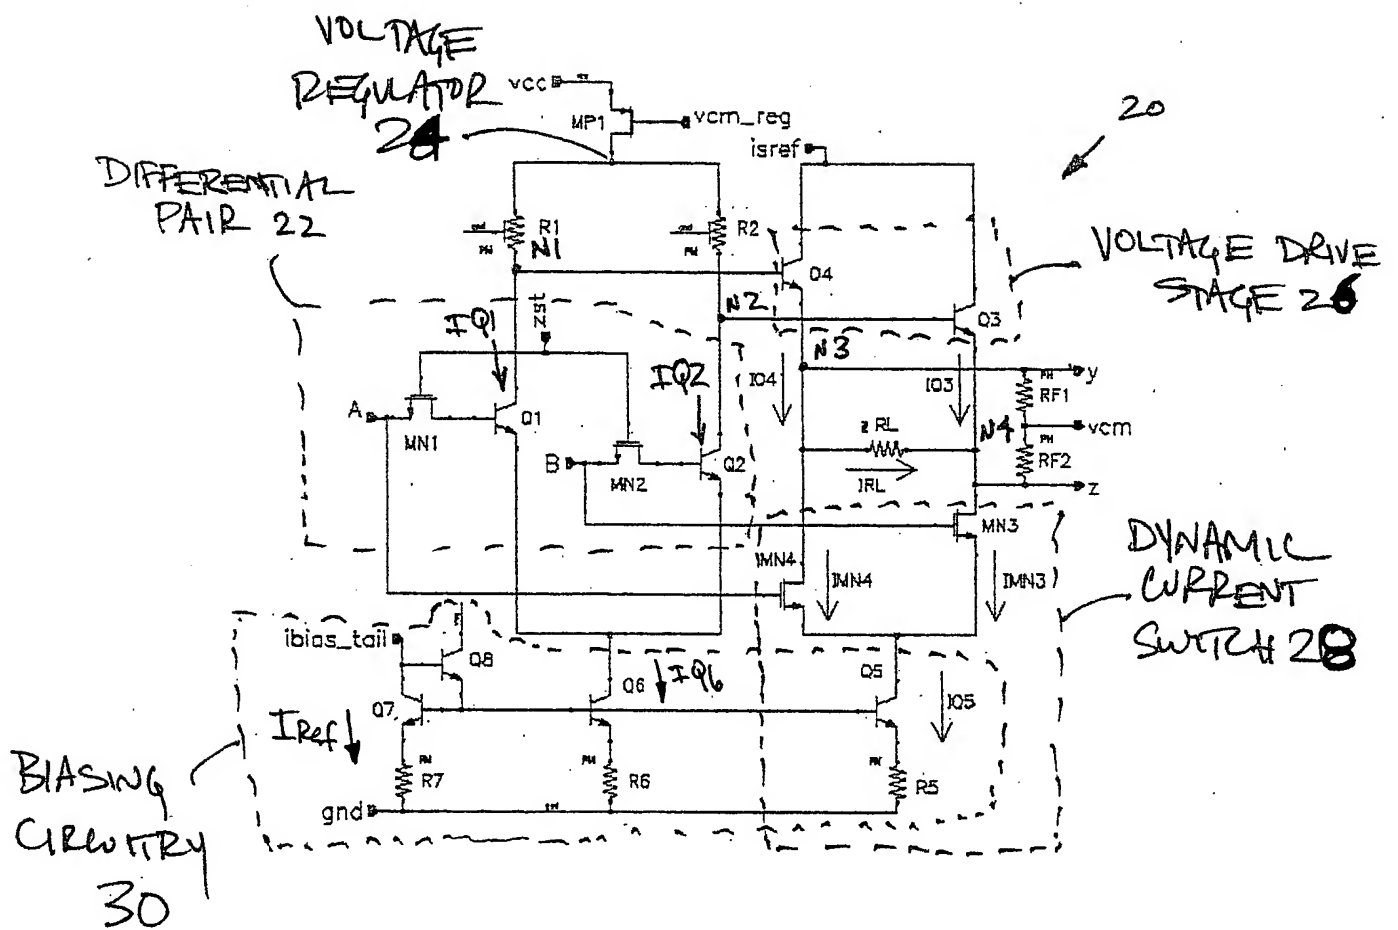 VOLTAGE
REGULATOR
24
vcc
MP1
vcm_reg
isref
20
DIFFERENTIAL
PAIR 22
R1
N1
R2
Q4
VOLTAGE DRIVE
STAGE 26
IQ1
zst
N2
Q3
N3
IQ2
IQ4
IQ3
y
RF1
A
MN1
Q1
RL
N4
vcm
B
MN2
Q2
IRL
RF2
z
MN3
DYNAMIC
CURRENT
SWITCH 28
IMN4
IMN4
IMN3
ibias_tail
Q8
Q7
Q6
IQ6
Q5
IQ5
IRef
R7
R6
R5
gnd
BIASING
CIRCUITRY
30